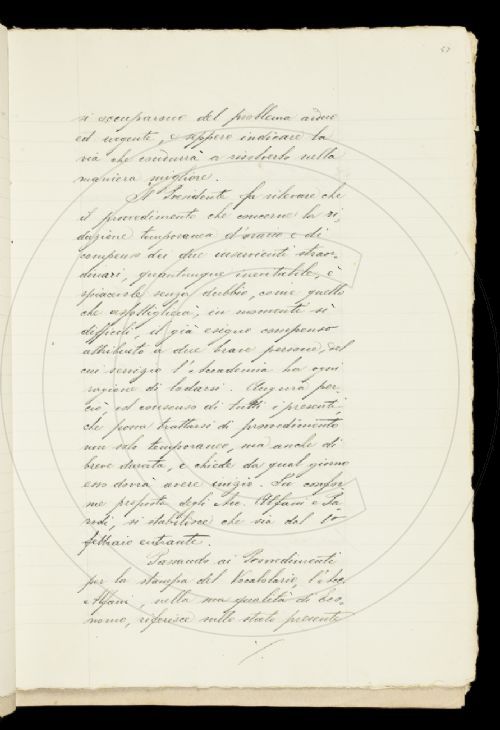 si occuparono del problema arduo
ed urgente, e seppero indicare la
via che condurrà a risolverlo nella
maniera migliore.
Il Presidente fa rilevare che
il provvedimento che concerne la ri-
duzione temporanea d'orario e di
compenso dei due inservienti straor-
dinari, quantunque inevitabile, è
spiacevole senza dubbio, come quello
che assottiglierà, in momenti sì
difficili, il già esiguo compenso
attribuito a due brave persone, del
cui servizio l'Accademia ha ogni
ragione di lodarsi. Augura per
ciò, col consenso di tutti i presenti,
che possa trattarsi di provvedimento
non solo temporaneo, ma anche di
breve durata, e chiede da qual giorno
esso dovrà avere inizio. Su confor-
me proposta degli Acc. Alfani e Pa-
rodi, si stabilisce che sia dal 1º
febbraio entrante.
Passando ai Provvedimenti
per la stampa del Vocabolario, l'Acc.
Alfani, nella sua qualità di Eco-
nomo, riferisce sullo stato presente